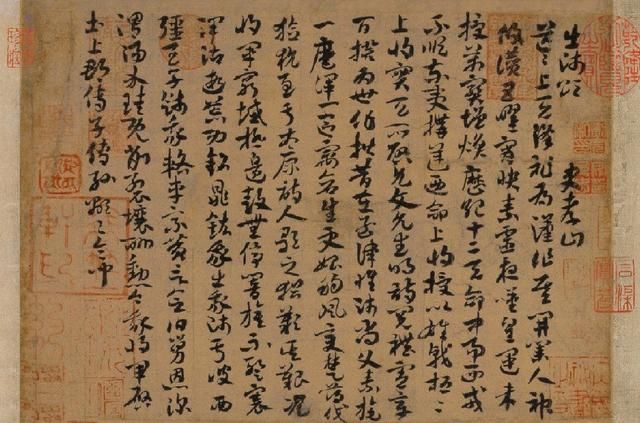 出師頌 史孝山
茫茫上天降祚為漢作基開業人神
攸讚五曜宵映素靈夜歎皇運來
授萬寶增煥歷紀十二天命中易西戎
不順東夷構逆乃命上將授以雄戟桓桓
上將寔天所啟允文允武明詩閱禮憲章
百揆為世作楷昔在孟津惟師尚父素旄
一麾渾一區宇蒼生更始朔風變楚薄伐
獫狁至于太原詩人歌之猶歎其艱況
我將軍窮城極邊鼓無停響旗不蹔褰
澤沾遐荒功銘鼎鉉我出我師于彼西
疆天子餞我路車乘黃言念伯舅恩深
渭陽介珪既削裂壤酬勳今我將軍啟
土上郡傳子傳孫顯顯令問